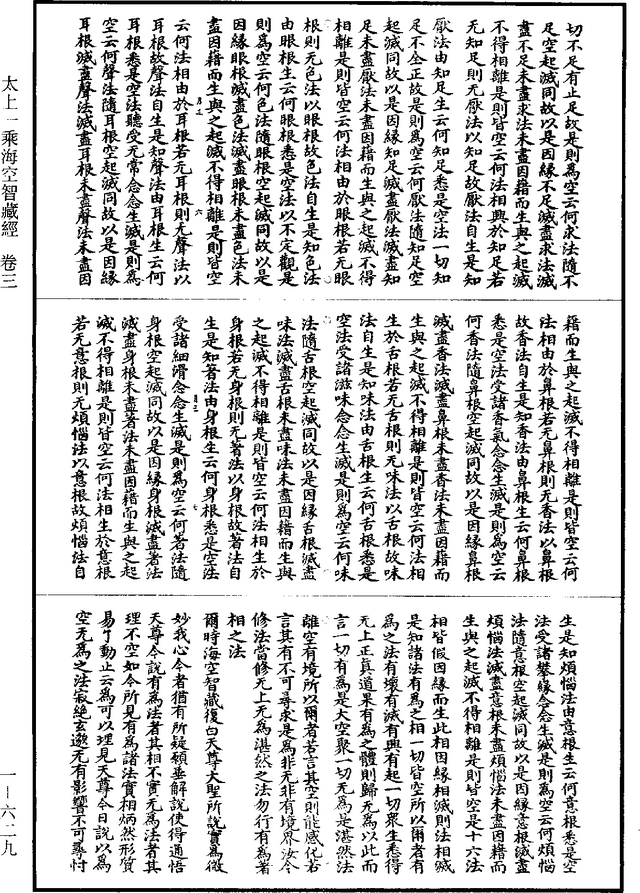 切不足有止足故是則為空云何求法隨不
足空起滅同故以是因緣不足滅盡求法滅
盡不足未盡求法未盡因藉而生與之起滅
不得相離是則皆空云何法相興於知足若
无知足則无厭法以知足故厭法自生是知
厭法由知足生云何知足悉是空法一切知
足不企正故是則為空云何厭法隨知足空
起滅同故以是因緣知足滅盡厭法滅盡知
足未盡厭法未盡因藉而生與之起滅不得
相離是則皆空云何法相由於眼根若无眼
根則无色法以眼根故色法自生是知色法
由眼根生云何眼根悉是空法以不定觀是
則為空云何色法隨眼根空起滅同故以是
因緣眼根滅盡色法滅盡眼根未盡色法未
盡因藉而生與之起滅不得相離是則皆空
云何法相由於耳根若无耳根則无聲法以
耳根故聲法自生是知聲法由耳根生云何
耳根悉是空法聽受无常念念生滅是則為
空云何聲法隨耳根空起滅同故以是因緣
耳根滅盡聲法滅盡耳根未盡聲法未盡因
藉而生與之起滅不得相離是則皆空云何
法相由於鼻根若无鼻根則无香法以鼻根
故香法自生是知香法由鼻根生云何鼻根
悉是空法受諸香氣念念生滅是則為空云
何香法隨鼻根空起滅同故以是因緣鼻根
滅盡香法滅盡鼻根未盡香法未盡因藉而
生與之起滅不得相離是則皆空云何法相
生於舌根若无舌根則无味法以舌根故味
法自生是知味法由舌根生云何舌根悉是
空法受諸滋味念念生滅是則為空云何味
法隨舌根空起滅同故以是因緣舌根滅盡
味法滅盡舌根未盡味法未盡因藉而生與
之起滅不得相離是則皆空云何法相生於
身根若无身根則无著法以身根故著法自
生是知著法由身根生云何身根悉是空法
受諸細滑念念生滅是則為空云何著法隨
身根空起滅同故以是因緣身根滅盡著法
滅盡身根未盡著法未盡因藉而生與之起
滅不得相離是則皆空云何法相生於意根
若无意根則无煩惱法以意根故煩惱法自
生是知煩惱法由意根生云何意根悉是空
法受諸攀緣念念生滅是則為空云何煩惱
法隨意根空起滅同故以是因緣意根滅盡
煩惱法滅盡意根未盡煩惱法未盡因藉而
生與之起滅不得相離是則皆空是十六法
相皆假因緣而生此相因緣相滅則法相滅
是知諸法有為之相一切皆空所以爾者有
為之法有壞有滅有興有起一切衆生悉得
无上正真道果有為之體則歸无為以此而
言一切有為是大空聚一切无為是湛然法
離空有境所以爾者若言其空則能感化若
言其有不可尋求是為非无非有境界汝今
修法當修无上无為湛然之法勿行有為著
相之法
爾時海空智藏復白天尊大聖所說實為微
妙我心今者猶有所疑願垂解說使得通悟
天尊令說有為法者其相不實无為法者其
理不空如今所見有為諸法實相炳然形質
易了動止云為可以理見天尊今日說以為
空无為之法寂絕玄邈无有影響不可尋忖
太上一乘海空智藏經 卷三
一—六二九